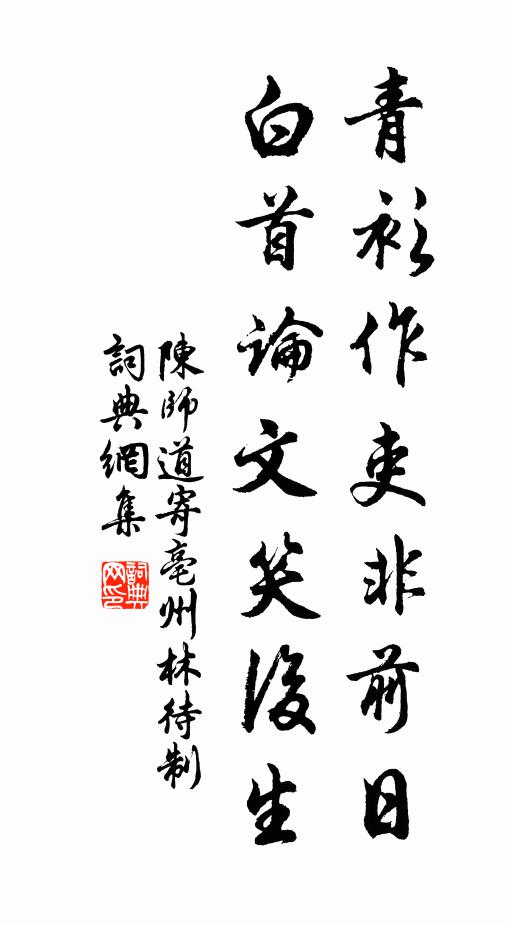 青衫作吏非前日
白首論文笑後生
陳師道寄亳州林待制
詞典網集
詞典网印